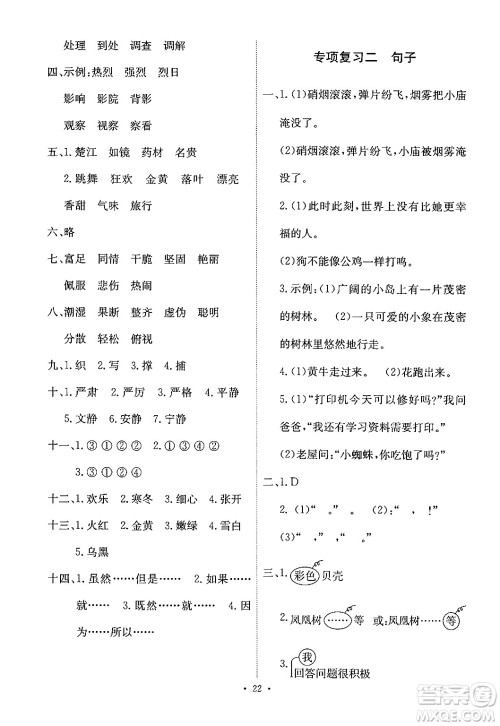 处理 到处 调查 调解
四、示例:热烈 强烈 烈日
影响 影院 背影
观察 视察 察看
五、1.楚江 如镜 药材 名贵
2.跳舞 狂欢 金黄 落叶 漂亮
香甜 气味 旅行
六、略
七、富足 同情 干脆 坚固 艳丽
佩服 悲伤 热闹
八、潮湿 果断 整齐 虚伪 聪明
分散 轻松 俯视
九、1.织 2.写 3.撑 4.捕
十、1.严肃 2.严厉 3.严格 4.平静
5.文静 6.安静 7.宁静
十一、1.③①②② 2.③①②
3.②①③④
十二、1.欢乐 2.寒冬 3.细心 4.张开
十三、1.火红 2.金黄 3.嫩绿 4.雪白
5.乌黑
十四、1.虽然……但是…… 2.如果……
就…… 3.既然……就…… 4.因
为……所以……
专项复习二 句子
一、1.(1)硝烟滚滚,弹片纷飞,烟雾把小庙
淹没了。
(2)硝烟滚滚,弹片纷飞,小庙被烟雾淹
没了。
2.(1)此时此刻,世界上没有比她更幸
福的人。
(2)狗不能像公鸡一样打鸣。
3.示例:(1)广阔的小岛上有一片茂密
的树林。 (2)可爱的小象在茂密
的树林里悠然地行走。
4.(1)黄牛走过来。 (2)花跑出来。
5.(1)“打印机今天可以修好吗?”我问
爸爸,“我还有学习资料需要打印。”
(2)老屋问:“小蜘蛛,你吃饱了吗?”
二、1.D
2.(1)“ 。” 。 (2)“ ,!”
(3)“ ,” ,“ 。”
三、1.彩色贝壳
2.凤凰树……等 或:凤凰树……等
3.我
回答问题很积极
· 22 ·